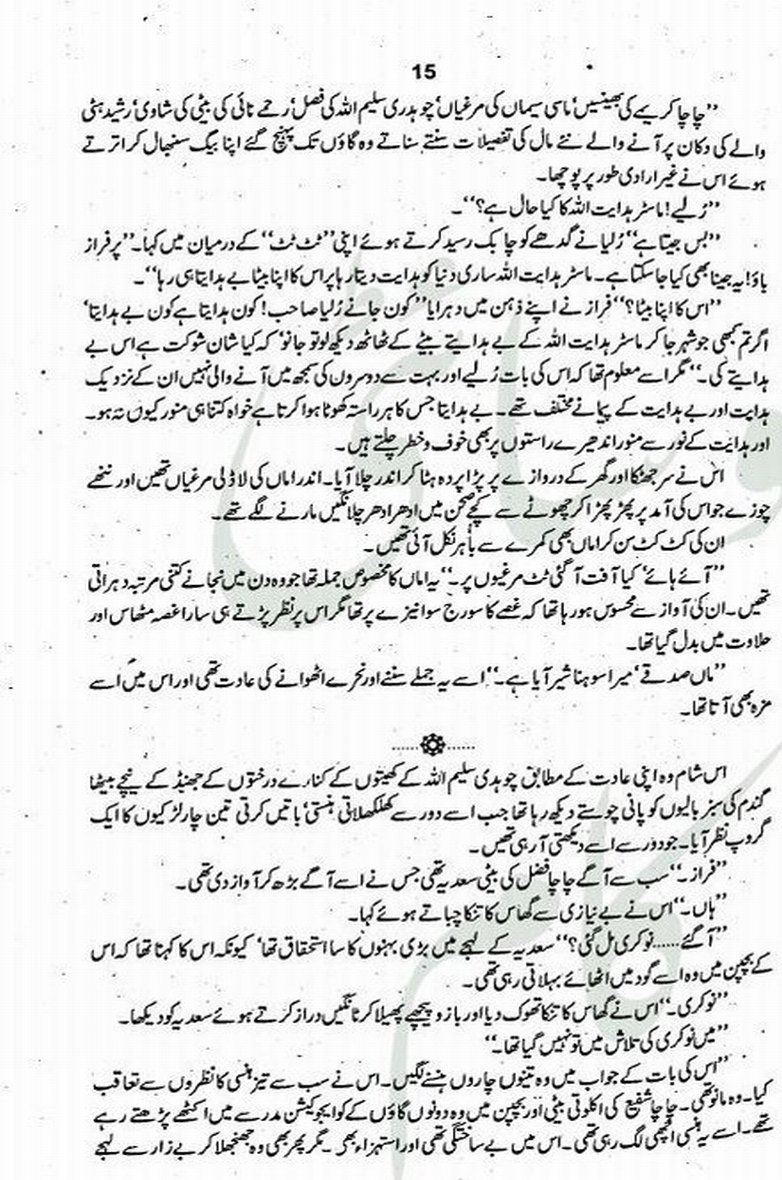 15
”چاچا کریمے کی بھینسیں‘ ماسی سیماں کی مرغیاں‘ چوہدری سلیم اللہ کی فصل‘ رحمے نائی کی بیٹی کی شادی‘ رشید ہٹی
والے کی دکان پر آنے والے نئے مال کی تفصیلات سنتے سناتے وہ گاؤں تک پہنچ گئے اپنا بیگ سنبھال کر اترتے
ہوئے اس نے غیر ارادی طور پر پوچھا۔
”رُلیے! ماسٹر ہدایت اللہ کا کیا حال ہے؟“۔
”بس جیتا ہے“ رُلیا نے گدھے کو چابک رسید کرتے ہوئے اپنی ”ٹٹ ٹٹ“ کے درمیان میں کہا۔ ”پر فراز
باؤ! یہ جینا بھی کیا جا سکتا ہے۔ ماسٹر ہدایت اللہ ساری دنیا کو ہدایت دیتا رہا پر اس کا اپنا بیٹا بے ہدایتا ہی رہا“۔
”اس کا اپنا بیٹا؟“ فراز نے اپنے ذہن میں دہرایا ”کون جانے رُلیا صاحب! کون ہدایتا ہے کون بے ہدایتا‘
اگر تم کبھی جو شہر جا کر ماسٹر ہدایت اللہ کے بے ہدایتے بیٹے کے ٹھاٹھ دیکھ لو تو جانو‘ کہ کیا شان شوکت ہے اس بے
ہدایتے کی۔“ مگر اسے معلوم تھا کہ اس کی بات رُلیے اور بہت سے دوسروں کی سمجھ میں آنے والی نہیں ان کے نزدیک
ہدایت اور بے ہدایت کے پیمانے مختلف تھے۔ بے ہدایتا جس کا ہر راستہ کھوٹا ہوا کرتا ہے خواہ کتنا ہی منور کیوں نہ ہو۔
اور ہدایت کے نور سے منور اندھیرے راستوں پر بھی خوف و خطر چلتے ہیں۔
اس نے سر جھٹکا اور گھر کے دروازے پر پڑا پردہ ہٹا کر اندر چلا آیا۔ اندر اماں کی لاڈلی مرغیاں تھیں اور ننھے
چوزے جو اس کی آمد پر پھڑ پھڑا کر چھوٹے سے کچے صحن میں ادھر ادھر چلانگیں مارنے لگے تھے۔
ان کی کٹ کٹ سن کر اماں بھی کمرے سے باہر نکل آئی تھیں۔
”آئے ہائے‘ کیا آفت آ گئی ٹٹ مرغیوں پر۔“ یہ اماں کا مخصوص جملہ تھا جو وہ دن میں نجانے کتنی مرتبہ دہراتی
تھیں۔ ان کی آواز سے محسوس ہو رہا تھا کہ غصے کا سورج سوا نیزے پر تھا مگر اس پر نظر پڑتے ہی سارا غصہ مٹھاس اور
حلاوت میں بدل گیا تھا۔
”ماں صدقے‘ میرا سوہنا شیر آیا ہے۔“ اسے یہ جملے سننے اور نخرے اٹھوانے کی عادت تھی اور اس میں اُسے
مزہ بھی آتا تھا۔
اس شام وہ اپنی عادت کے مطابق چوہدی سلیم اللہ کے کھیتوں کے کنارے درختوں کے جھنڈ کے نیچے بیٹھا
گندم کی سبز بالیوں کو پانی چوستے دیکھ رہا تھا جب اسے دور سے کھلکھلاتی ہنستی‘ باتیں کرتی تین چار لڑکیوں کا ایک
گروپ نظر آیا۔ جو دور سے اسے دیکھتی آ رہی تھیں۔
”فراز۔“ سب سے آگے چاچا فضل کی بیٹی سعدیہ تھی جس نے اسے آگے بڑھ کر آواز دی تھی۔
”ہاں۔“ اس نے بے نیازی سے گھاس کا تنکا چباتے ہوئے کہا۔
”آ گئے...... نوکری مل گئی؟“ سعدیہ کے لہجے میں بڑی بہنوں کا سا استحقاق تھا‘ کیونکہ اس کا کہنا تھا کہ اس
کے بچپن میں وہ اسے گود میں اٹھائے بہلاتی رہی تھی۔
”نوکری۔“ اس نے گھاس کا تنکا تھوک دیا اور بازو پیچھے پھیلا کر ٹانگیں دراز کرتے ہوئے سعدیہ کو دیکھا۔
”میں نوکری کی تلاش میں تو نہیں گیا تھا۔“
”اس کی بات کے جواب میں وہ تینوں چاروں ہنسنے لگیں۔ اس نے سب سے تیز ہنسی کا نظروں سے تعاقب
کیا۔ وہ مانو تھی۔ چاچا شفیع کی اکلوتی بیٹی اور بچپن میں وہ دونوں گاؤں کے کو ایجوکیشن مدرسے میں اکٹھے پڑھتے رہے
تھے۔ اسے یہ ہنسی اچھی لگ رہی تھی۔ اس میں بے ساختگی تھی اور استہزاء بھی۔ مگر پھر بھی وہ جھنجھلا کر بے زار سے لہجے